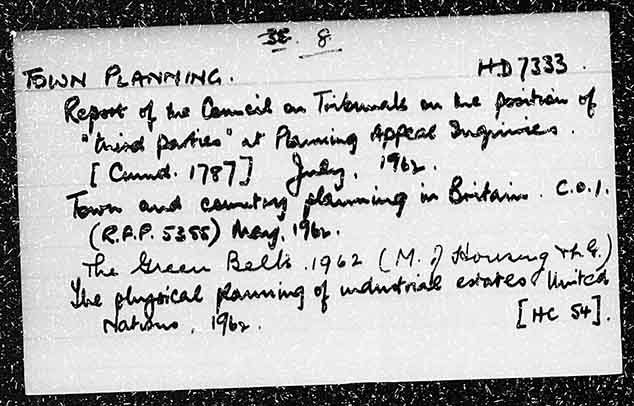 38. 8.
TOWN PLANNING. HD 7333.
Report of the Council on Tribunals on the position of
"third parties" at Planning Appeal Inquiries.
[Cmnd. 1787] July, 1962.
Town and country planning in Britain. C.O.I.
(R.F.P. 5355) May, 1962.
The Green Belts. 1962 (M. of Housing & L.G.)
The physical planning of industrial estates United
Nations, 1962. [HC 54].